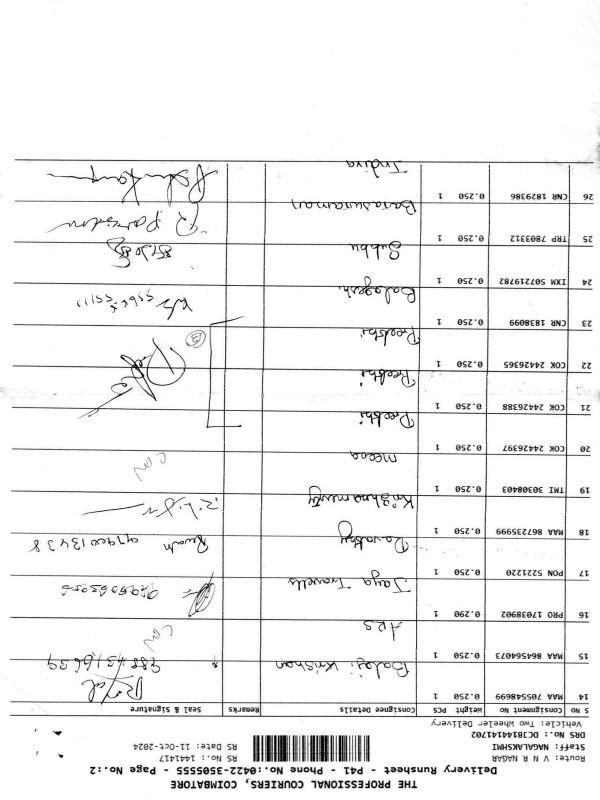 THE PROFESSIONAL COURIERS, COIMBATORE
Delivery Runsheet - P41 - Phone No.:0422-3505555 - Page No.:2
Route: V N R NAGAR RS No.: 141417
Staff: NAGALAKSHMI RS Date: 11-Oct-2024
DRS No.: DCJB4141702
Vehicle: Two Wheeler Delivery
S NO Consignment No Weight PCS Consignee Details Remarks Seal & Signature
14 MAA 705548699 0.250 1 Balaji Krishnan
15 MAA 864564073 0.250 1 ARS
16 PRO 17038902 0.290 1 Jaya Travells
17 PON 5221220 0.250 1 Revathy Revath 9790013438
18 MAA 867235999 0.250 1 Krishnamurty
19 TMI 30308403 0.250 1 Meena
20 COK 24426397 0.250 1 Preethi
21 COK 24426388 0.250 1 Preethi
22 COK 24426365 0.250 1 Preethi (3)
23 CNR 1838099 0.250 1 Balagesh
24 IXM 507219782 0.250 1 Subbu
25 TRP 7803312 0.250 1 Banasuraman
26 CNR 1829386 0.250 1 Indira